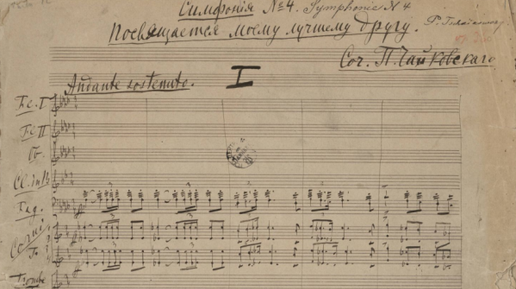 Симфонія №4. Symphonie N 4
Посвящается моему лучшему другу.
Соч. П. Чайковскаго
I
Andante sostenuto.
Fl. I
Fl. II
Ob.
Cl. in B
Fag.
Corni
Trombe